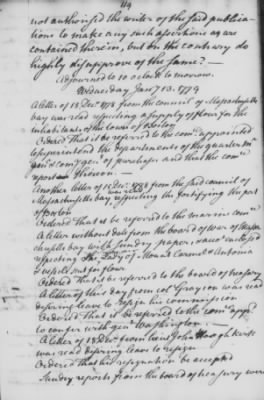 not authorised the writer of the said publica-
tions to make any such assertions as are
contained therein, but on the contrary do
highly disapprove of the same? —
Adjourned to 10 o'clock to morrow.
Wednesday Jany 13. 1779
A letter of 18 Decr 1778 from the council of Massachusetts
bay was read respecting a supply of flour for the
inhabitants of the town of Boston
Ordered That it be referred to the come appointed
to superintend the departments of the quarter mr
genl & comy genl of purchases and that the come
report thereon —
Another letter of 1778 from the said council of
Massachusetts bay respecting the fortifying the port
of boston was read
Ordered That it be referred to the marine come
A letter without date from the board of war of Massa
chusetts bay with sundry papers enclosed
respecting the Lady of Mount Carmel & Antonia
a vessel
Ordered That it be referred to the board of treasury
A letter of this day from col Grayson was read
desiring leave to resign his commission
Ordered That it be referred to the come appd
to confer with genl Washington —
A letter of 18 Decr from John Hough
was read desiring leave to resign
Ordered That his resignation be accepted
Sundry reports from the board of treasury were